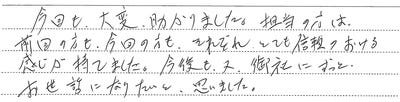 今回も、大変、助かりました。担当の方は、
前回の方も、今回の方も、それぞれ、とても信頼のおける
感じが持てました。今後も、又、御社にずっと、
お世話になりたいと、思いました。